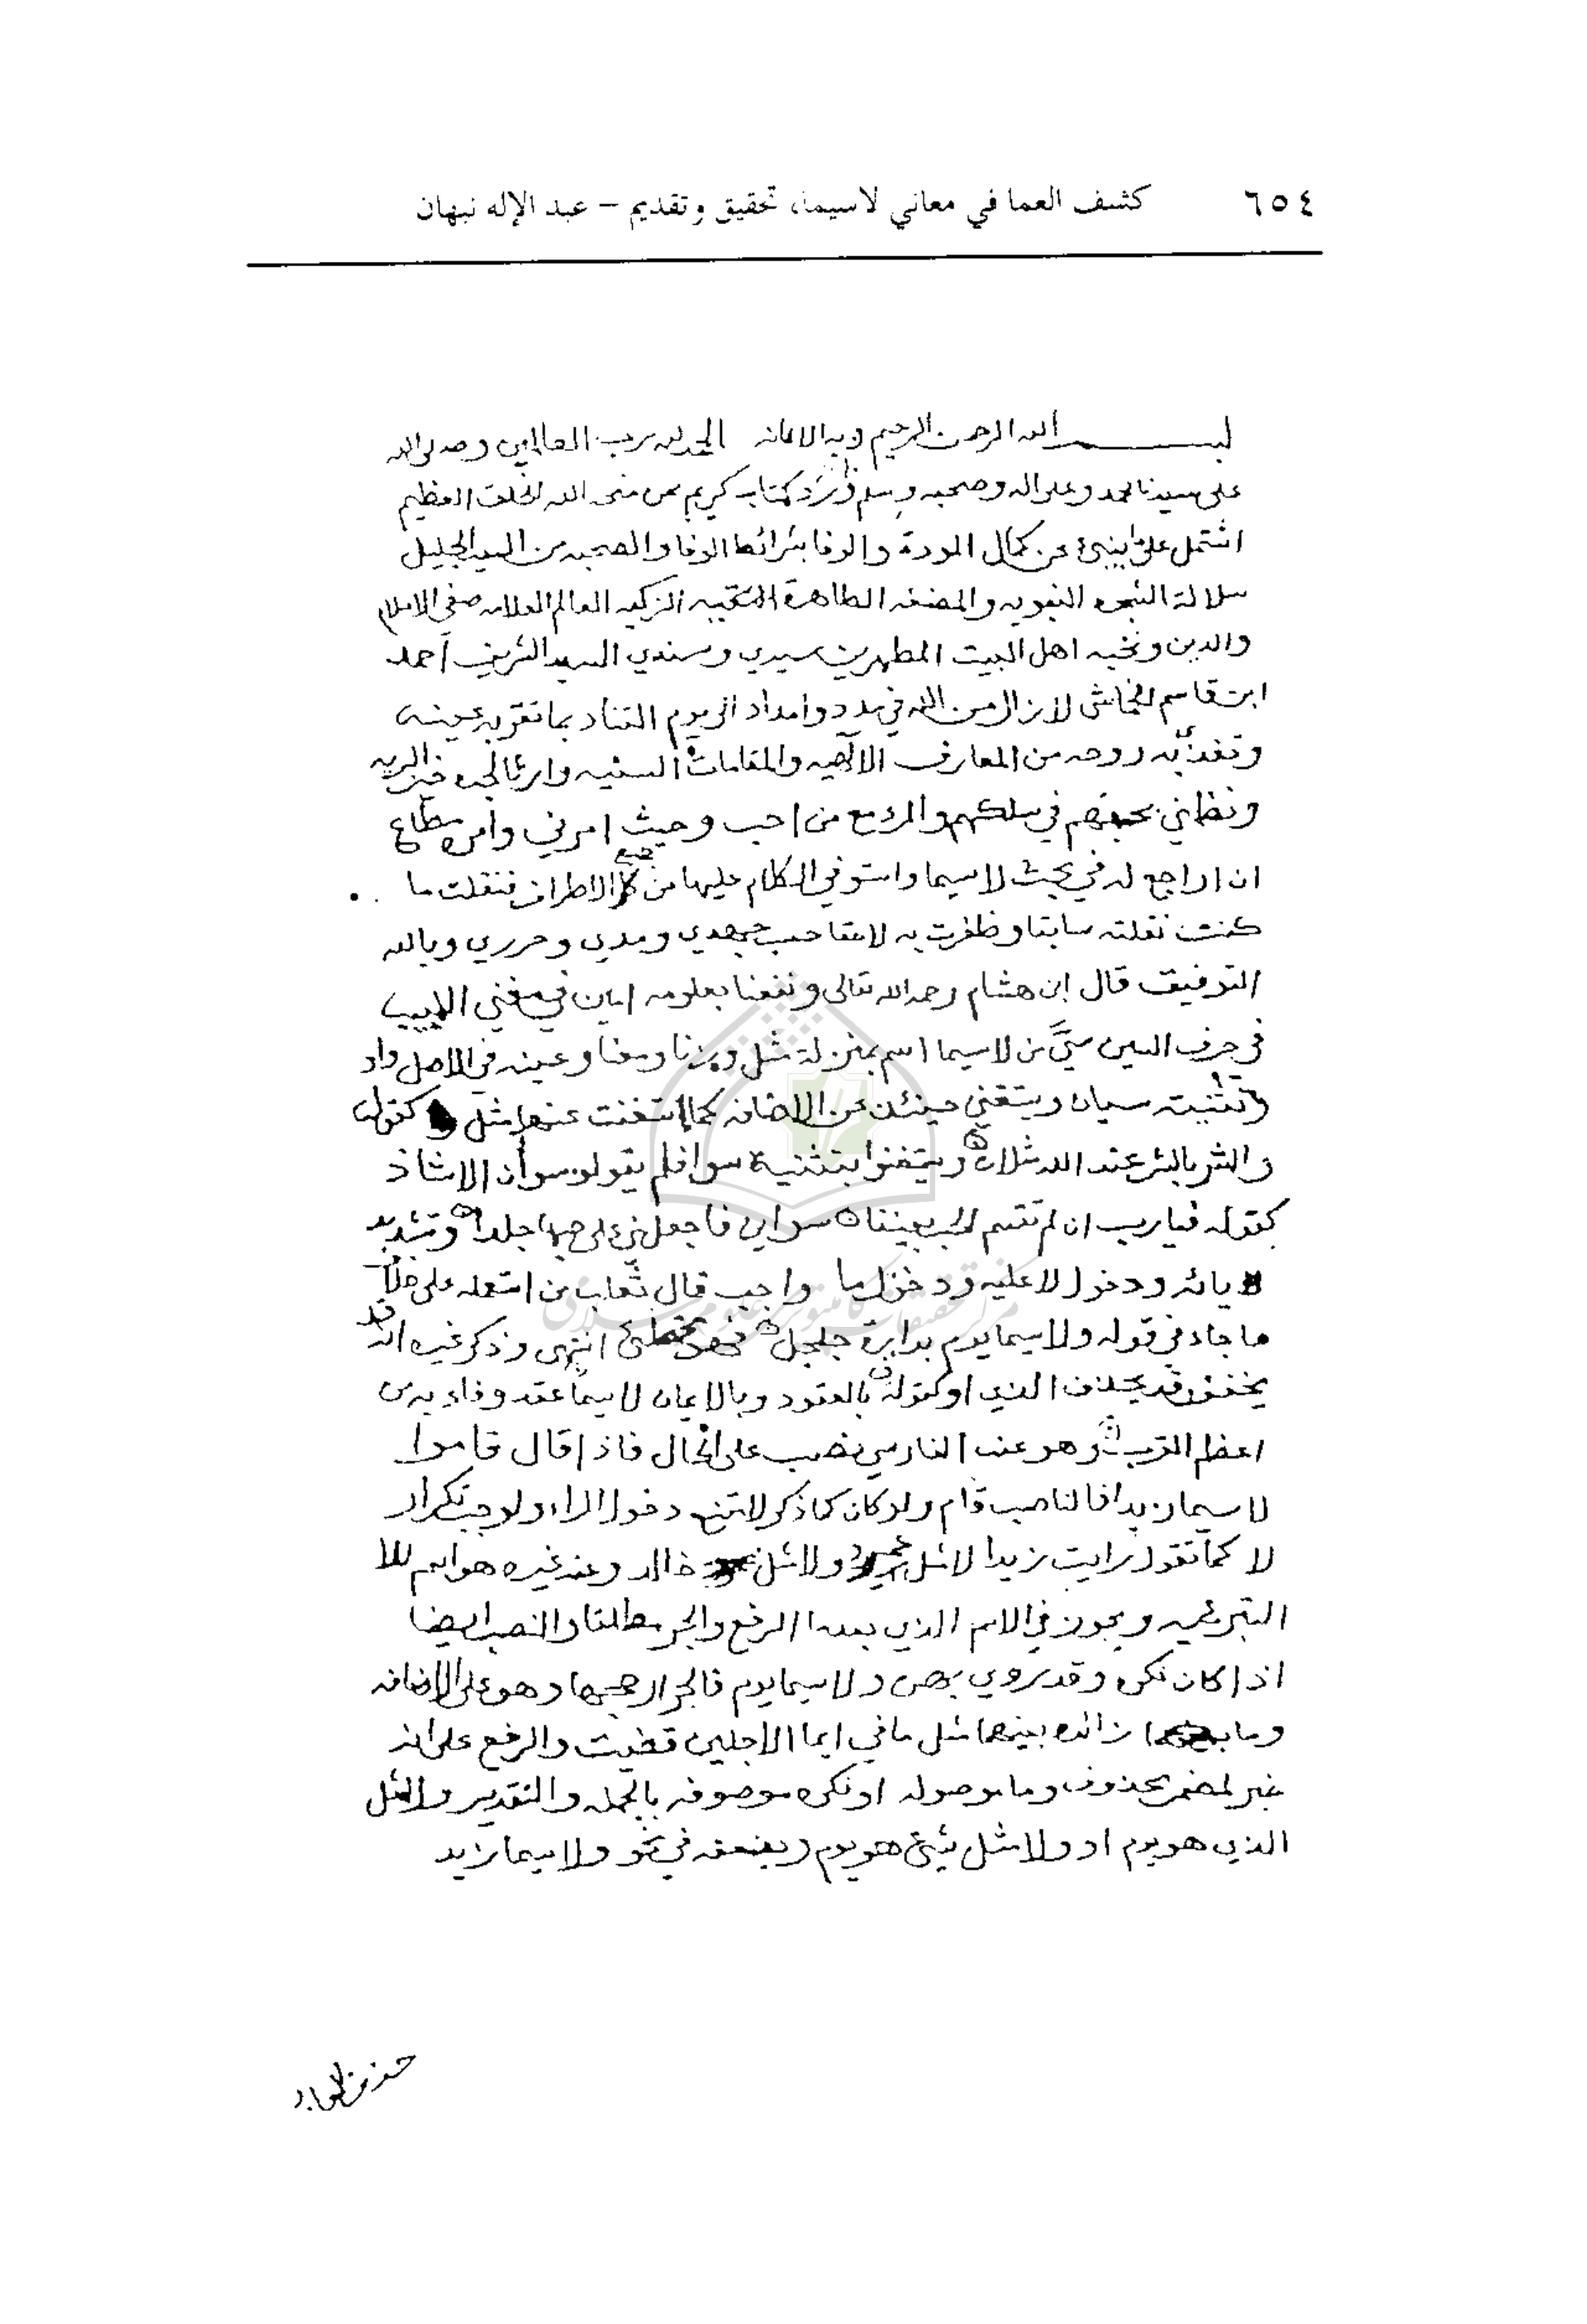 ٦٥٤ كشف العما في معاني لاسيما، تحقيق وتقديم – عبد الإله نبهان
بسم الله الرحمن الرحيم وبه الاعانه الحمد لله رب العالمين وصلى الله
على سيدنا محمد وعلى اله وصحبه وسلم ورد كتاب كريم ممن منحه الله الخلق العظيم
اشتمل على ما ينبئ عن كمال المودة والوفا بشرائط الوفا والصحبه من السيد الجليل
سلالة الشجره النبويه والمضغه الطاهرة المنتخبه الزكيه العالم العلامه صفي الاسلام
والدين ونخبه اهل البيت المطهرين سيدي وسندي السيد الشريف أحمد
ابن قاسم لا زال من الله في مدد وامداد الى يوم التناد بما تقر به عينه
وتغذأ به روحه من المعارف الالهيه والمقامات السنيه وارث لجده خير البريه
ونظمني بمحبتهم في سلكهم والمرء مع من احب وحيث امرني وامره مطاع
ان اراجع له في بحث لاسيما واستوفي الكلام عليها من جميع الاطراف فنقلت ما
كنت نقلته سابقا وظفرت به لاحقا حسب جهدي و وبالله
التوفيق قال ابن هشام رحمه الله تعالى ونفعنا بعلومه امين في مغني اللبيب
في حرف السين سيَّ من لاسيما اسم بمنزلة مثل وزنا ومعنا وعينه في الاصل واو
وتثنيته سيان ويستغني حينئذ عن الاضافه كما استغنت عنها مثل كقوله
والشر بالشر عند الله مثلان ويستغنوا بتثنية سوا فلم يقولوا سوأان الا شاذ
كقوله فيارب ان لم تقسم الحب بيننا سواين فاجعلني على حبها جلدا وتشديد
يائه ودخول لا عليه ودخول ما واجب قال ثعلب من استعمله على خلاف
ما جاء في قوله ولا سيما يوم بدارة جلجل فهو مخطئ انتهى وذكر غيره انه قد
يخفف وقد يحذف الذي او كقوله بالعقود وبالايمان لا سيما عقد وفاء به من
اعظم القرب وهو عند الفارسي نصب على الحال فاذا قال قاموا
لا سيما زيد فالناصب قام ولو كان كما ذكر لامتنع دخول الواو ولوجب تكرار
لا كما تقول رايت زيدا لا مثل عمرو ولا مثل خالد وعند غيره هو اسم للا
التبرئيه ويجوز في الاسم الذي بعدها الرفع والجر مطلقا والنصب ايضا
اذا كان نكره وقد روي بهن ولا سيما يوم فالجر ارجحها وهو على الاضافه
وما زائده بينهما مثل ما في ايما الاجلين قضيت والرفع على انه
خبر لمضمر محذوف وما موصوله او نكره موصوفه بالجمله والتقدير ولا مثل
الذي هو يوم او ولا مثل شيء هو يوم ويضعفه في نحو ولا سيما زيد